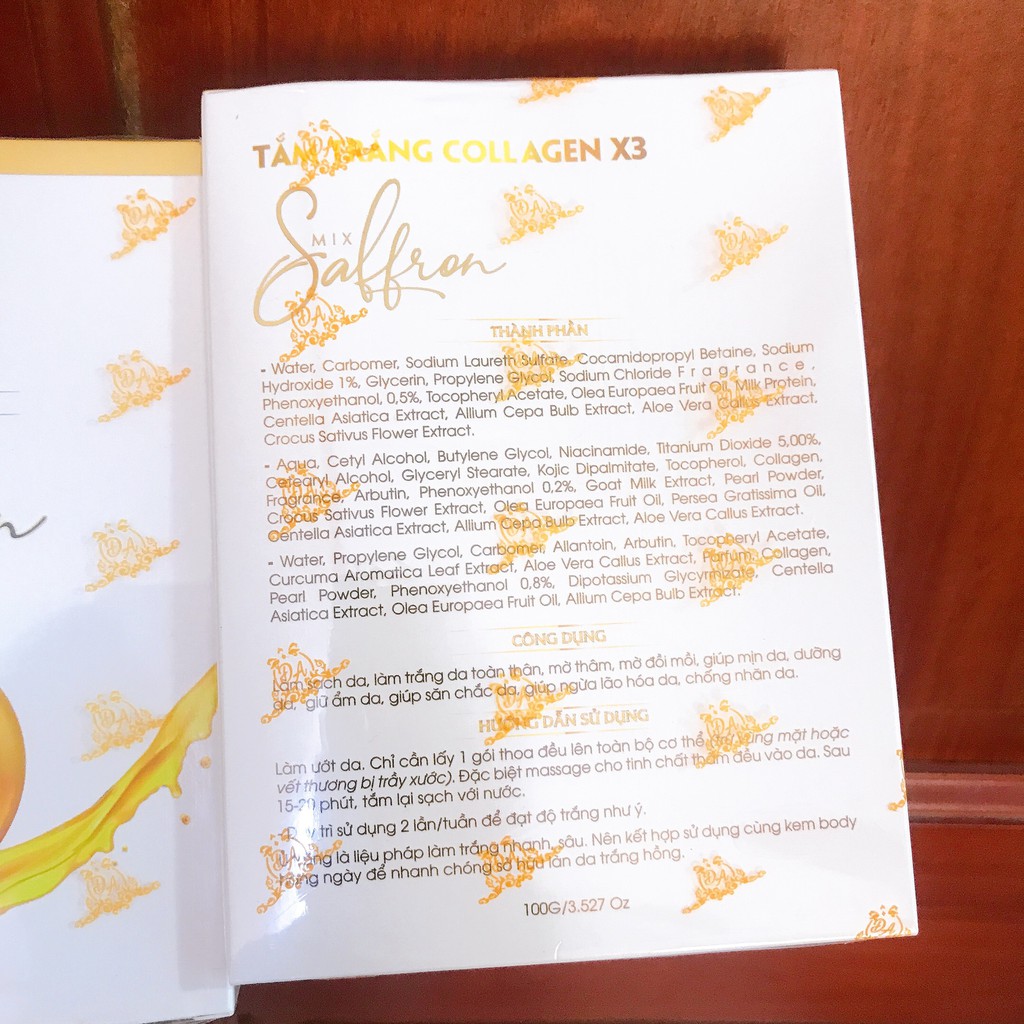 TẮM TRẮNG COLLAGEN X3
MIX
Saffron
THÀNH PHẦN
- Water, Carbomer, Sodium Laureth Sulfate, Cocamidopropyl Betaine, Sodium
Hydroxide 1%, Glycerin, Propylene Glycol, Sodium Chloride Fragrance,
Phenoxyethanol, 0,5%, Tocopheryl Acetate, Olea Europaea Fruit Oil, Milk Protein,
Centella Asiatica Extract, Allium Cepa Bulb Extract, Aloe Vera Callus Extract,
Crocus Sativus Flower Extract.
- Aqua, Cetyl Alcohol, Butylene Glycol, Niacinamide, Titanium Dioxide 5,00%,
Cerearyl Alcohol, Glyceryl Stearate, Kojic Dipalmitate, Tocopherol, Collagen,
Fragrance, Arbutin, Phenoxyethanol 0,2%, Goat Milk Extract, Pearl Powder,
Crocus Sativus Flower Extract, Olea Europaea Fruit Oil, Persea Gratissima Oil,
Centella Asiatica Extract, Allium Cepa Bulb Extract, Aloe Vera Callus Extract.
- Water, Propylene Glycol, Carbomer, Allantoin, Arbutin, Tocopheryl Acetate,
Curcuma Aromatica Leaf Extract, Aloe Vera Callus Extract, Parfum, Collagen,
Pearl Powder, Phenoxyethanol 0,8%, Dipotassium Glycyrrnizate, Centella
Asiatica Extract, Olea Europaea Fruit Oil, Allium Cepa Bulb Extract.
CÔNG DỤNG
Làm sạch da, làm trắng da toàn thân, mờ thâm, mờ đồi mồi, giúp mịn da, dưỡng
da, giữ ẩm da, giúp săn chắc da, giúp ngừa lão hóa da, chống nhăn da.
HƯỚNG DẪN SỬ DỤNG
Làm ướt da. Chỉ cần lấy 1 gói thoa đều lên toàn bộ cơ thể (trừ vùng mặt hoặc
vết thương bị trầy xước). Đặc biệt massage cho tinh chất thấm đều vào da. Sau
15-20 phút, tắm lại sạch với nước.
Duy trì sử dụng 2 lần/tuần để đạt độ trắng như ý.
là liệu pháp làm trắng nhanh, sâu. Nên kết hợp sử dụng cùng kem body
hằng ngày để nhanh chóng sở hữu làn da trắng hồng.
100G/3.527 Oz